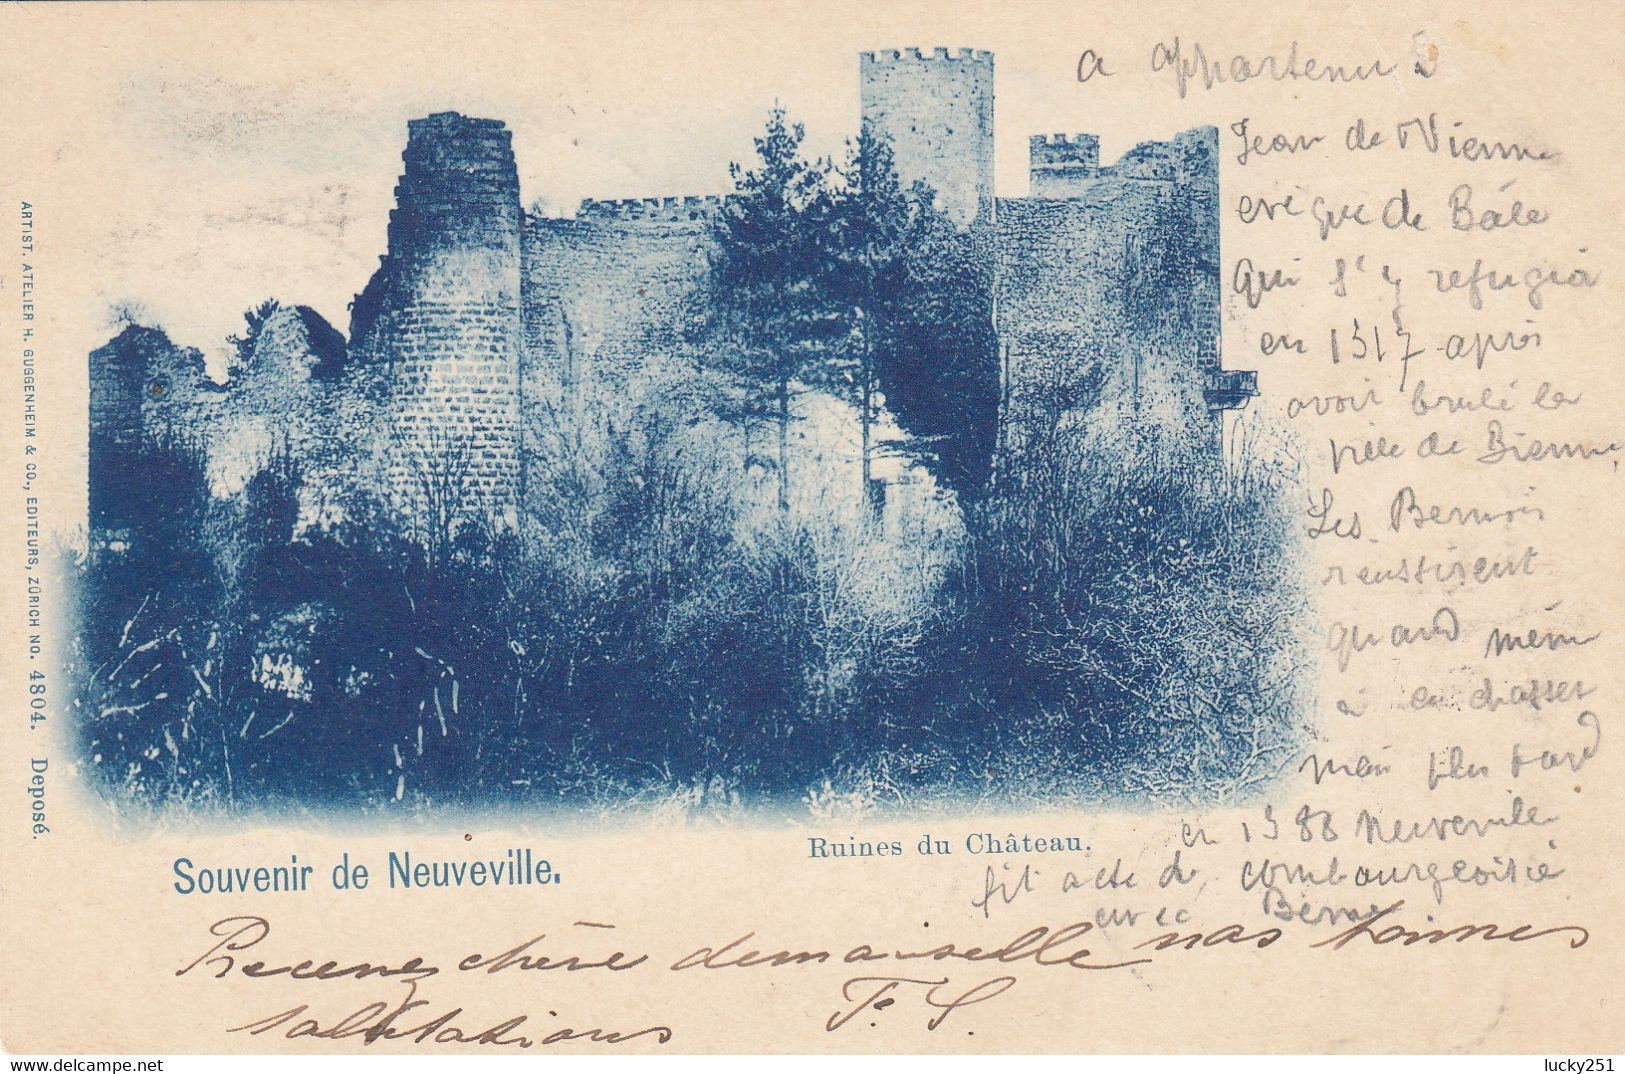 a appartenu à
Jean de Vienne
evêque de Bâle
qui s'y refugia
en 1317 après
avoir brulé la
ville de Bienne,
Les Bernois
reussirent
quand même
à en chasser
mais plus tard
en 1388 Neuveville
fit acte de combourgeoisie
avec Berne
ARTIST. ATELIER H. GUGGENHEIM & CO., EDITEURS, ZÜRICH No. 4804. Deposé.
Ruines du Château.
Souvenir de Neuveville.
Recevez chère demoiselle nos bonnes
salutations F. S.
lucky251